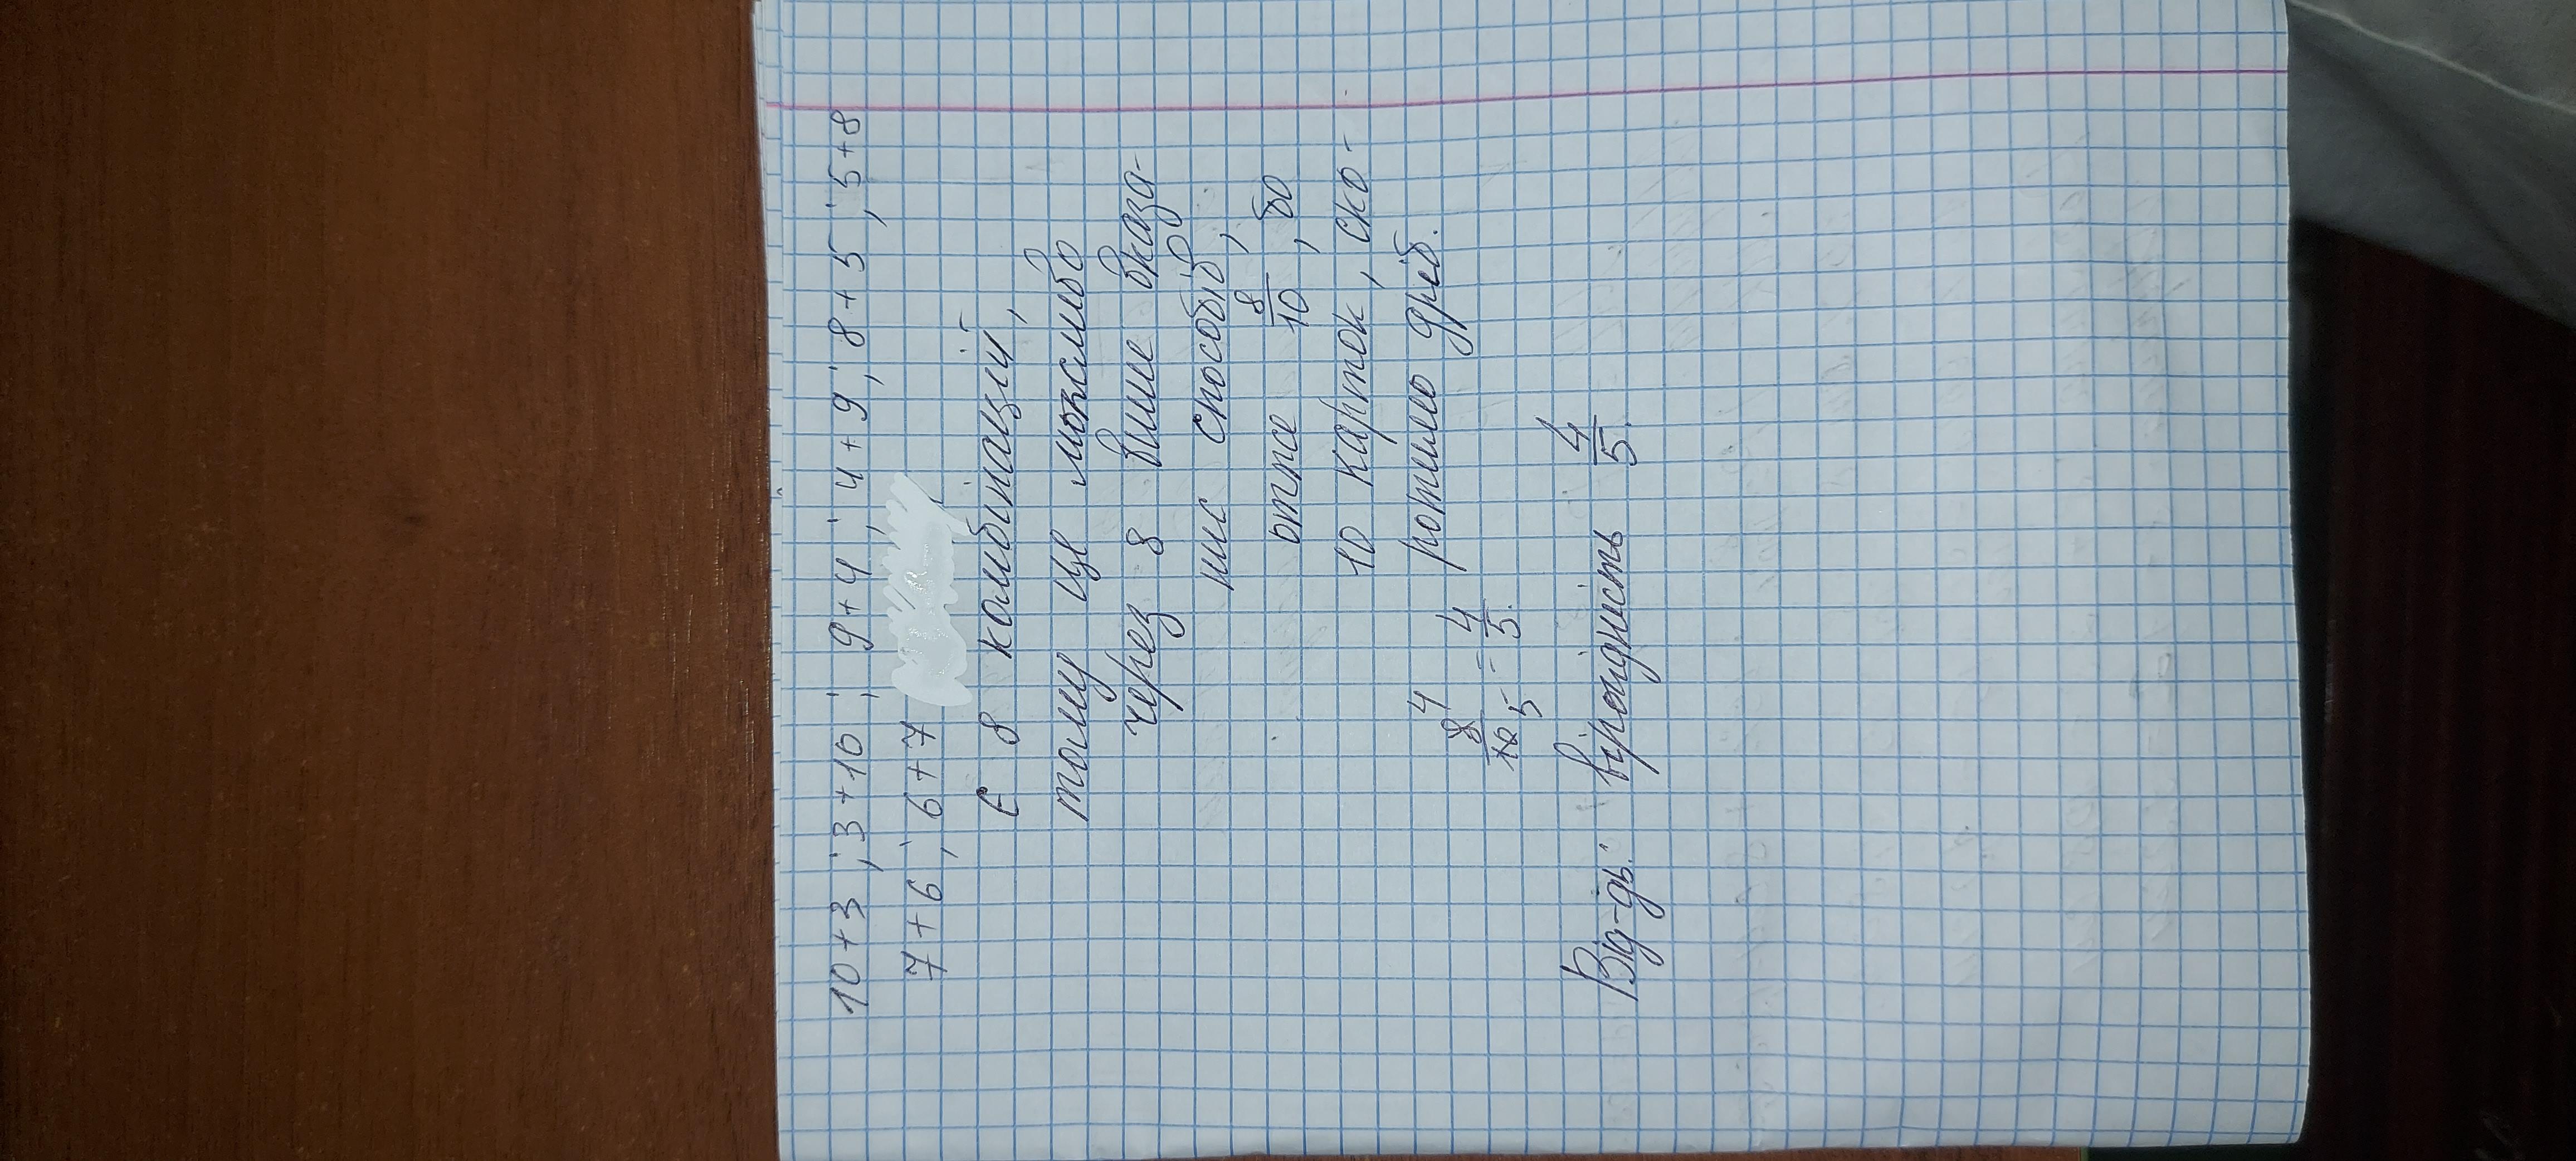 10 + 3 ; 3 + 10 ; 9 + 4 ; 4 + 9 ; 8 + 5 ; 5 + 8
7 + 6 ; 6 + 7
Є 8 комбінацій,
тому це можливо
через 8 више вказа-
них способів,
отже 8/10, бо
10 карток, ско-
ротимо дріб.
8/10 4 5 = 4/5.
Від-дь: вірогідність 4/5.